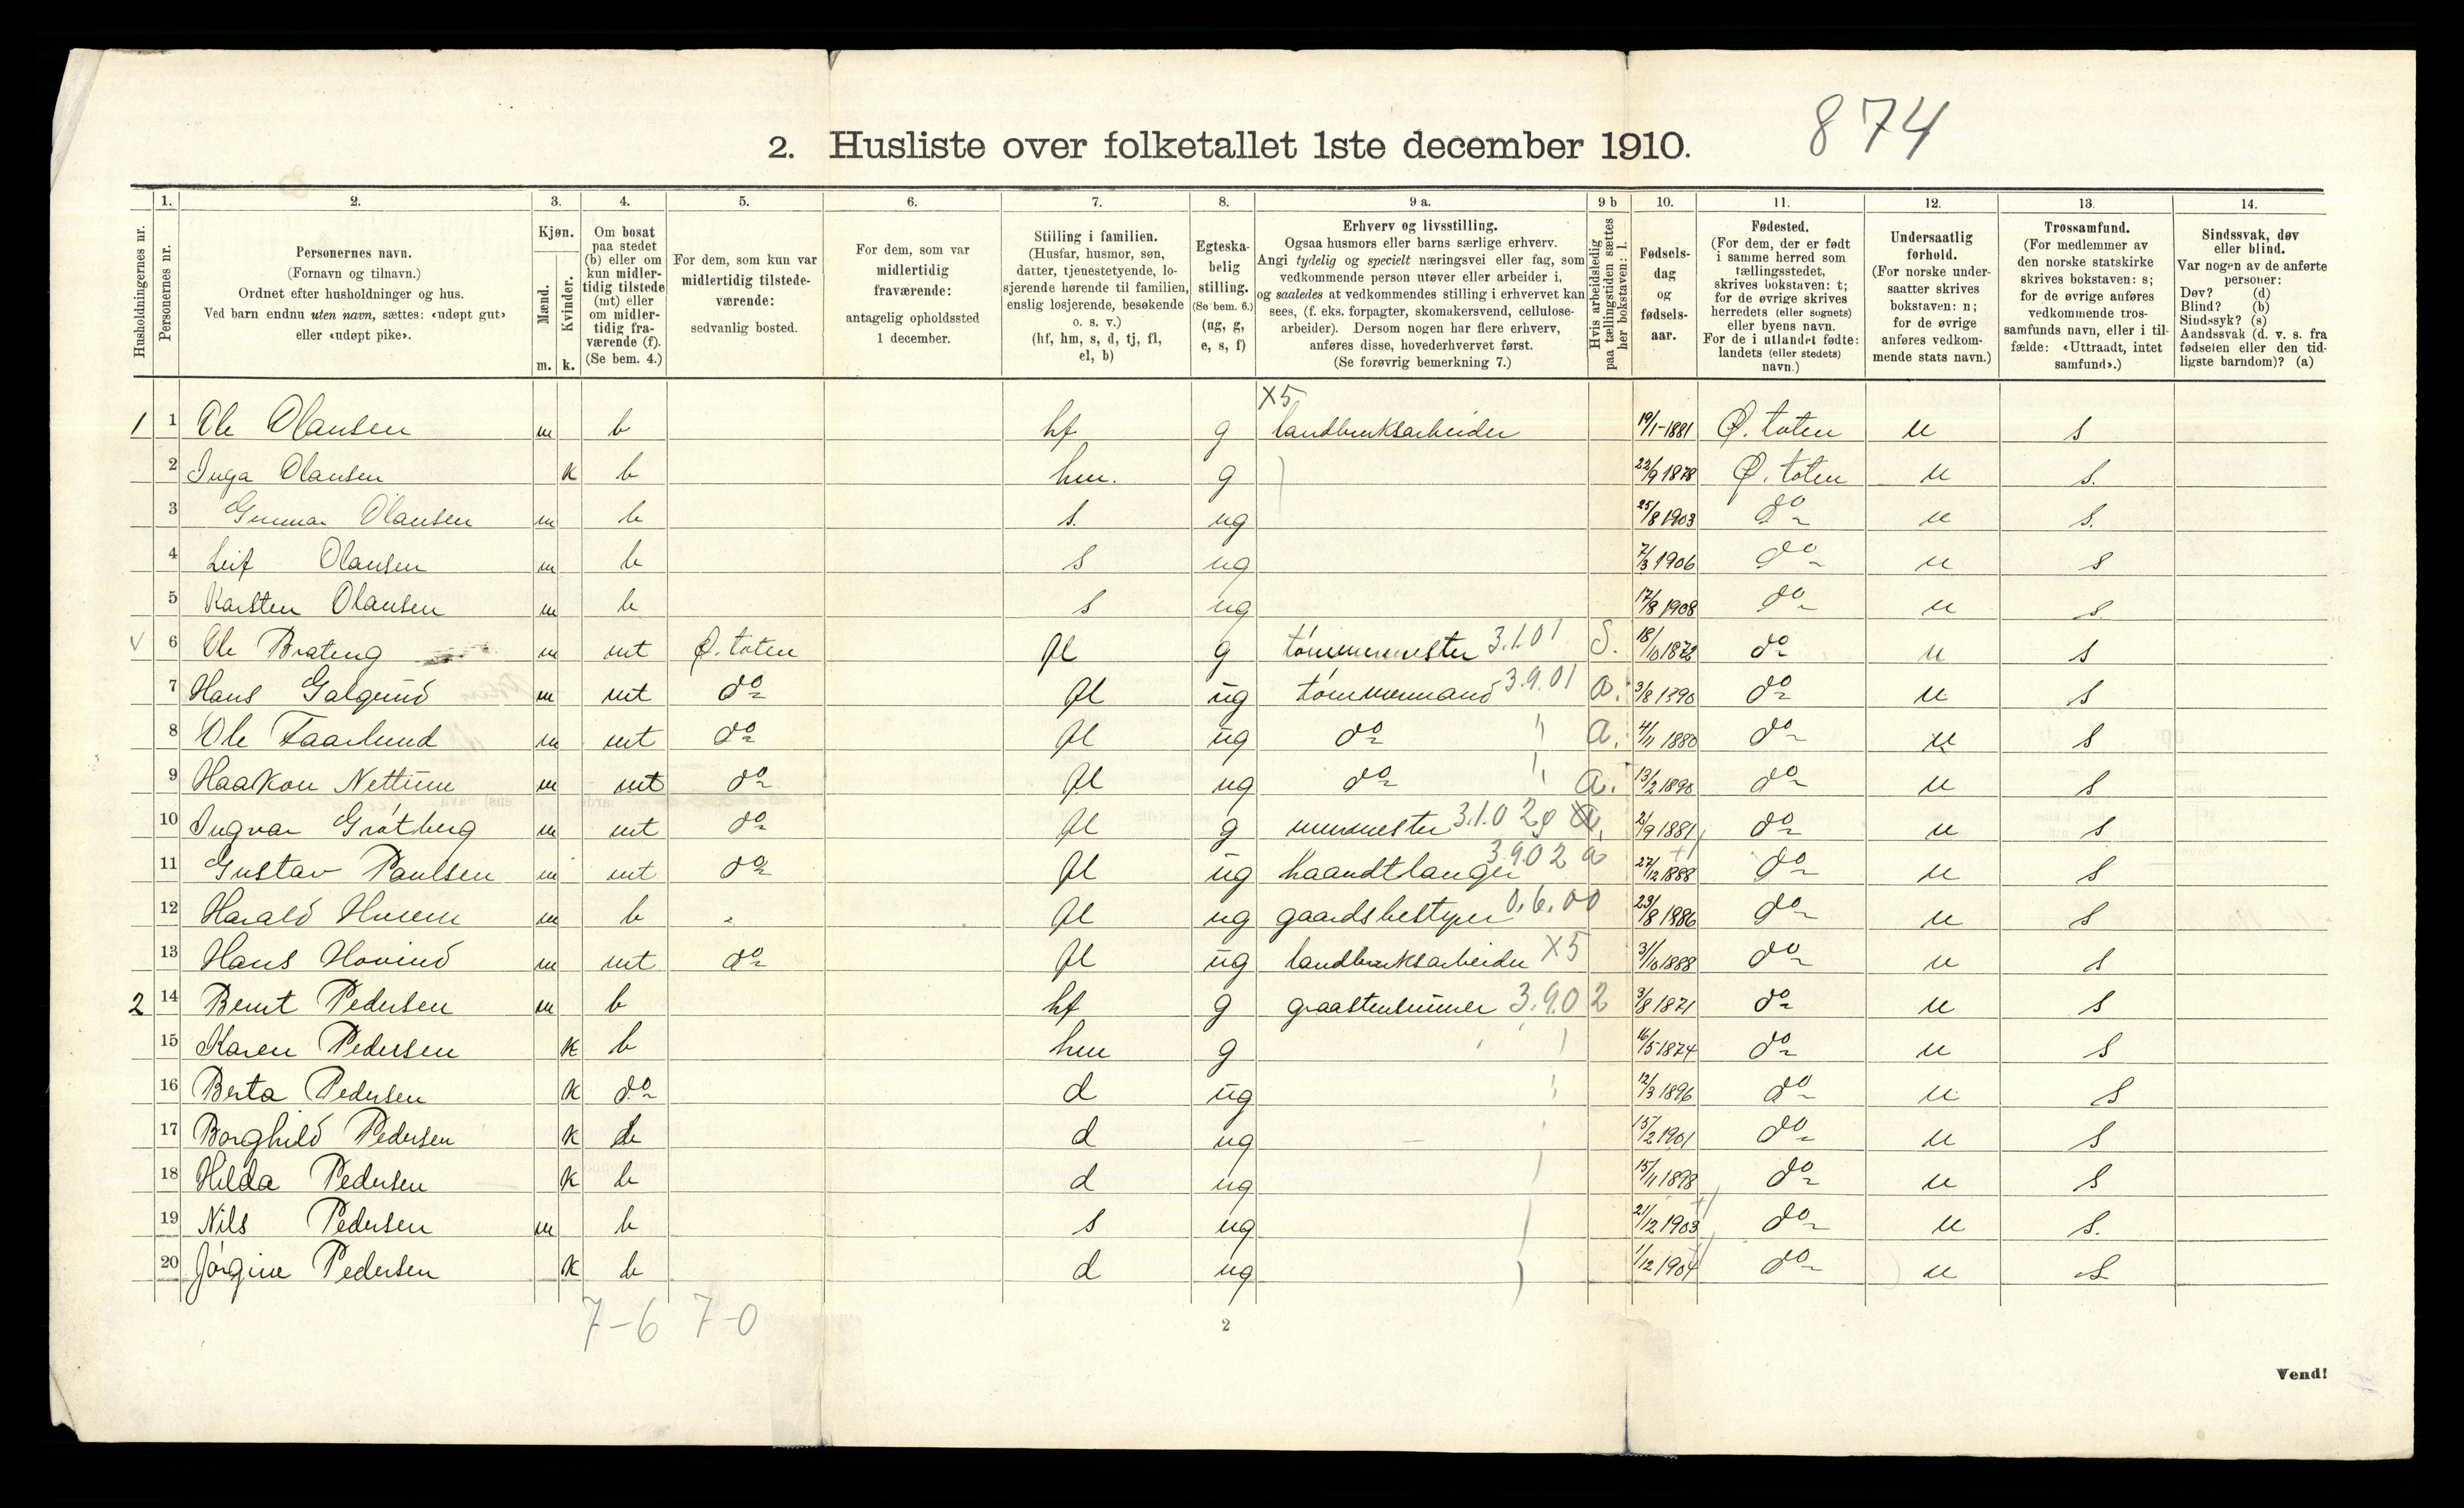 874
2. Husliste over folketallet 1ste december 1910.
Husholdningernes nr.
1. Personernes nr.
2. Personernes navn.
(Fornavn og tilnavn.)
Ordnet efter husholdninger og hus.
Ved barn endnu uten navn, sættes: «udøpt gut»
eller «udøpt pike».
3. Kjøn.
Mænd. m.
Kvinder. k.
4. Om bosat
paa stedet
(b) eller om
kun midler-
tidig tilstede
(mt) eller
om midler-
tidig fra-
værende (f).
(Se bem. 4.)
5. For dem, som kun var
midlertidig tilstede-
værende:
sedvanlig bosted.
6. For dem, som var
midlertidig
fraværende:
antagelig opholdssted
1 december.
7. Stilling i familien.
(Husfar, husmor, søn,
datter, tjenestetyende, lo-
sjerende hørende til familien,
enslig losjerende, besøkende
o. s. v.)
(hf, hm, s, d, tj, fl,
el, b)
8. Egteska-
belig
stilling.
(Se bem. 6.)
(ug, g,
e, s, f)
9 a. Erhverv og livsstilling.
Ogsaa husmors eller barns særlige erhverv.
Angi tydelig og specielt næringsvei eller fag, som
vedkommende person utøver eller arbeider i,
og saaledes at vedkommendes stilling i erhvervet kan
sees, (f. eks. forpagter, skomakersvend, cellulose-
arbeider). Dersom nogen har flere erhverv,
anføres disse, hovederhvervet først.
(Se forøvrig bemerkning 7.)
9 b Hvis arbeidsledig
paa tællingstiden sættes
her bokstaven: l.
10. Fødsels-
dag
og
fødsels-
aar.
11. Fødested.
(For dem, der er født
i samme herred som
tællingsstedet,
skrives bokstaven: t;
for de øvrige skrives
herredets (eller sognets)
eller byens navn.
For de i utlandet fødte:
landets (eller stedets)
navn.)
12. Undersaatlig
forhold.
(For norske under-
saatter skrives
bokstaven: n;
for de øvrige
anføres vedkom-
mende stats navn.)
13. Trossamfund.
(For medlemmer av
den norske statskirke
skrives bokstaven: s;
for de øvrige anføres
vedkommende tros-
samfunds navn, eller i til-
fælde: «Uttraadt, intet
samfund».)
14. Sindssvak, døv
eller blind.
Var nogen av de anførte
personer:
Døv? (d)
Blind? (b)
Sindssyk? (s)
Aandssvak (d. v. s. fra
fødselen eller den tid-
ligste barndom)? (a)
X5
1 1 Ole Olausen m b hf g landbruksarbeider 19/1-1881 Ø. toten n s
2 Inga Olausen k b hm. g 22/9 1878 Ø. toten n s.
3 Gunnar Olausen m b s. ug 25/8 1903 do n s.
4 Leif Olausen m b s ug 7/3 1906 do n s
5 Karsten Olausen m b s ug 17/8 1908 do n s
6 Ole Brateng m mt Ø. toten fl g tømmermester 3.1.01 S. 18/10 1872 do n s
7 Hans Galgund m mt do fl ug tømmermand 3.9.01 a. 3/8 1890 do n s
8 Ole Faarlund m mt do fl ug do " a. 4/11 1880 do n s
9 Haakon Nettum m mt do fl ug do " a. 13/2 1890 do n s
10 Ingvar Grøtberg m mt do fl g murmester 3.1.02 2/9 1881 do n s
11 Gustav Paulsen m mt do fl ug haandtlanger 3.9.02 a 27/12 1888 do n s
12 Harald Hveem m b fl ug gaardsbestyrer 0.6.00 23/8 1886 do n s
13 Hans Hovind m mt do fl ug landbruksarbeider X5 31/10 1888 do n s
2 14 Bernt Pedersen m b hf g graastensmurer 3.9.02 3/8 1871 do n s
15 Karen Pedersen k b hm g 16/5 1874 do n s
16 Berta Pedersen k do d ug 12/3 1896 do n s
17 Borghild Pedersen k b d ug 15/2 1901 do n s
18 Hilda Pedersen k b d ug 15/11 1898 do n s
19 Nils Pedersen m b s ug 21/12 1903 do n s.
20 Jørgine Pedersen k b d ug 1/12 1904 do n s
7-6 7-0
2
Vend!